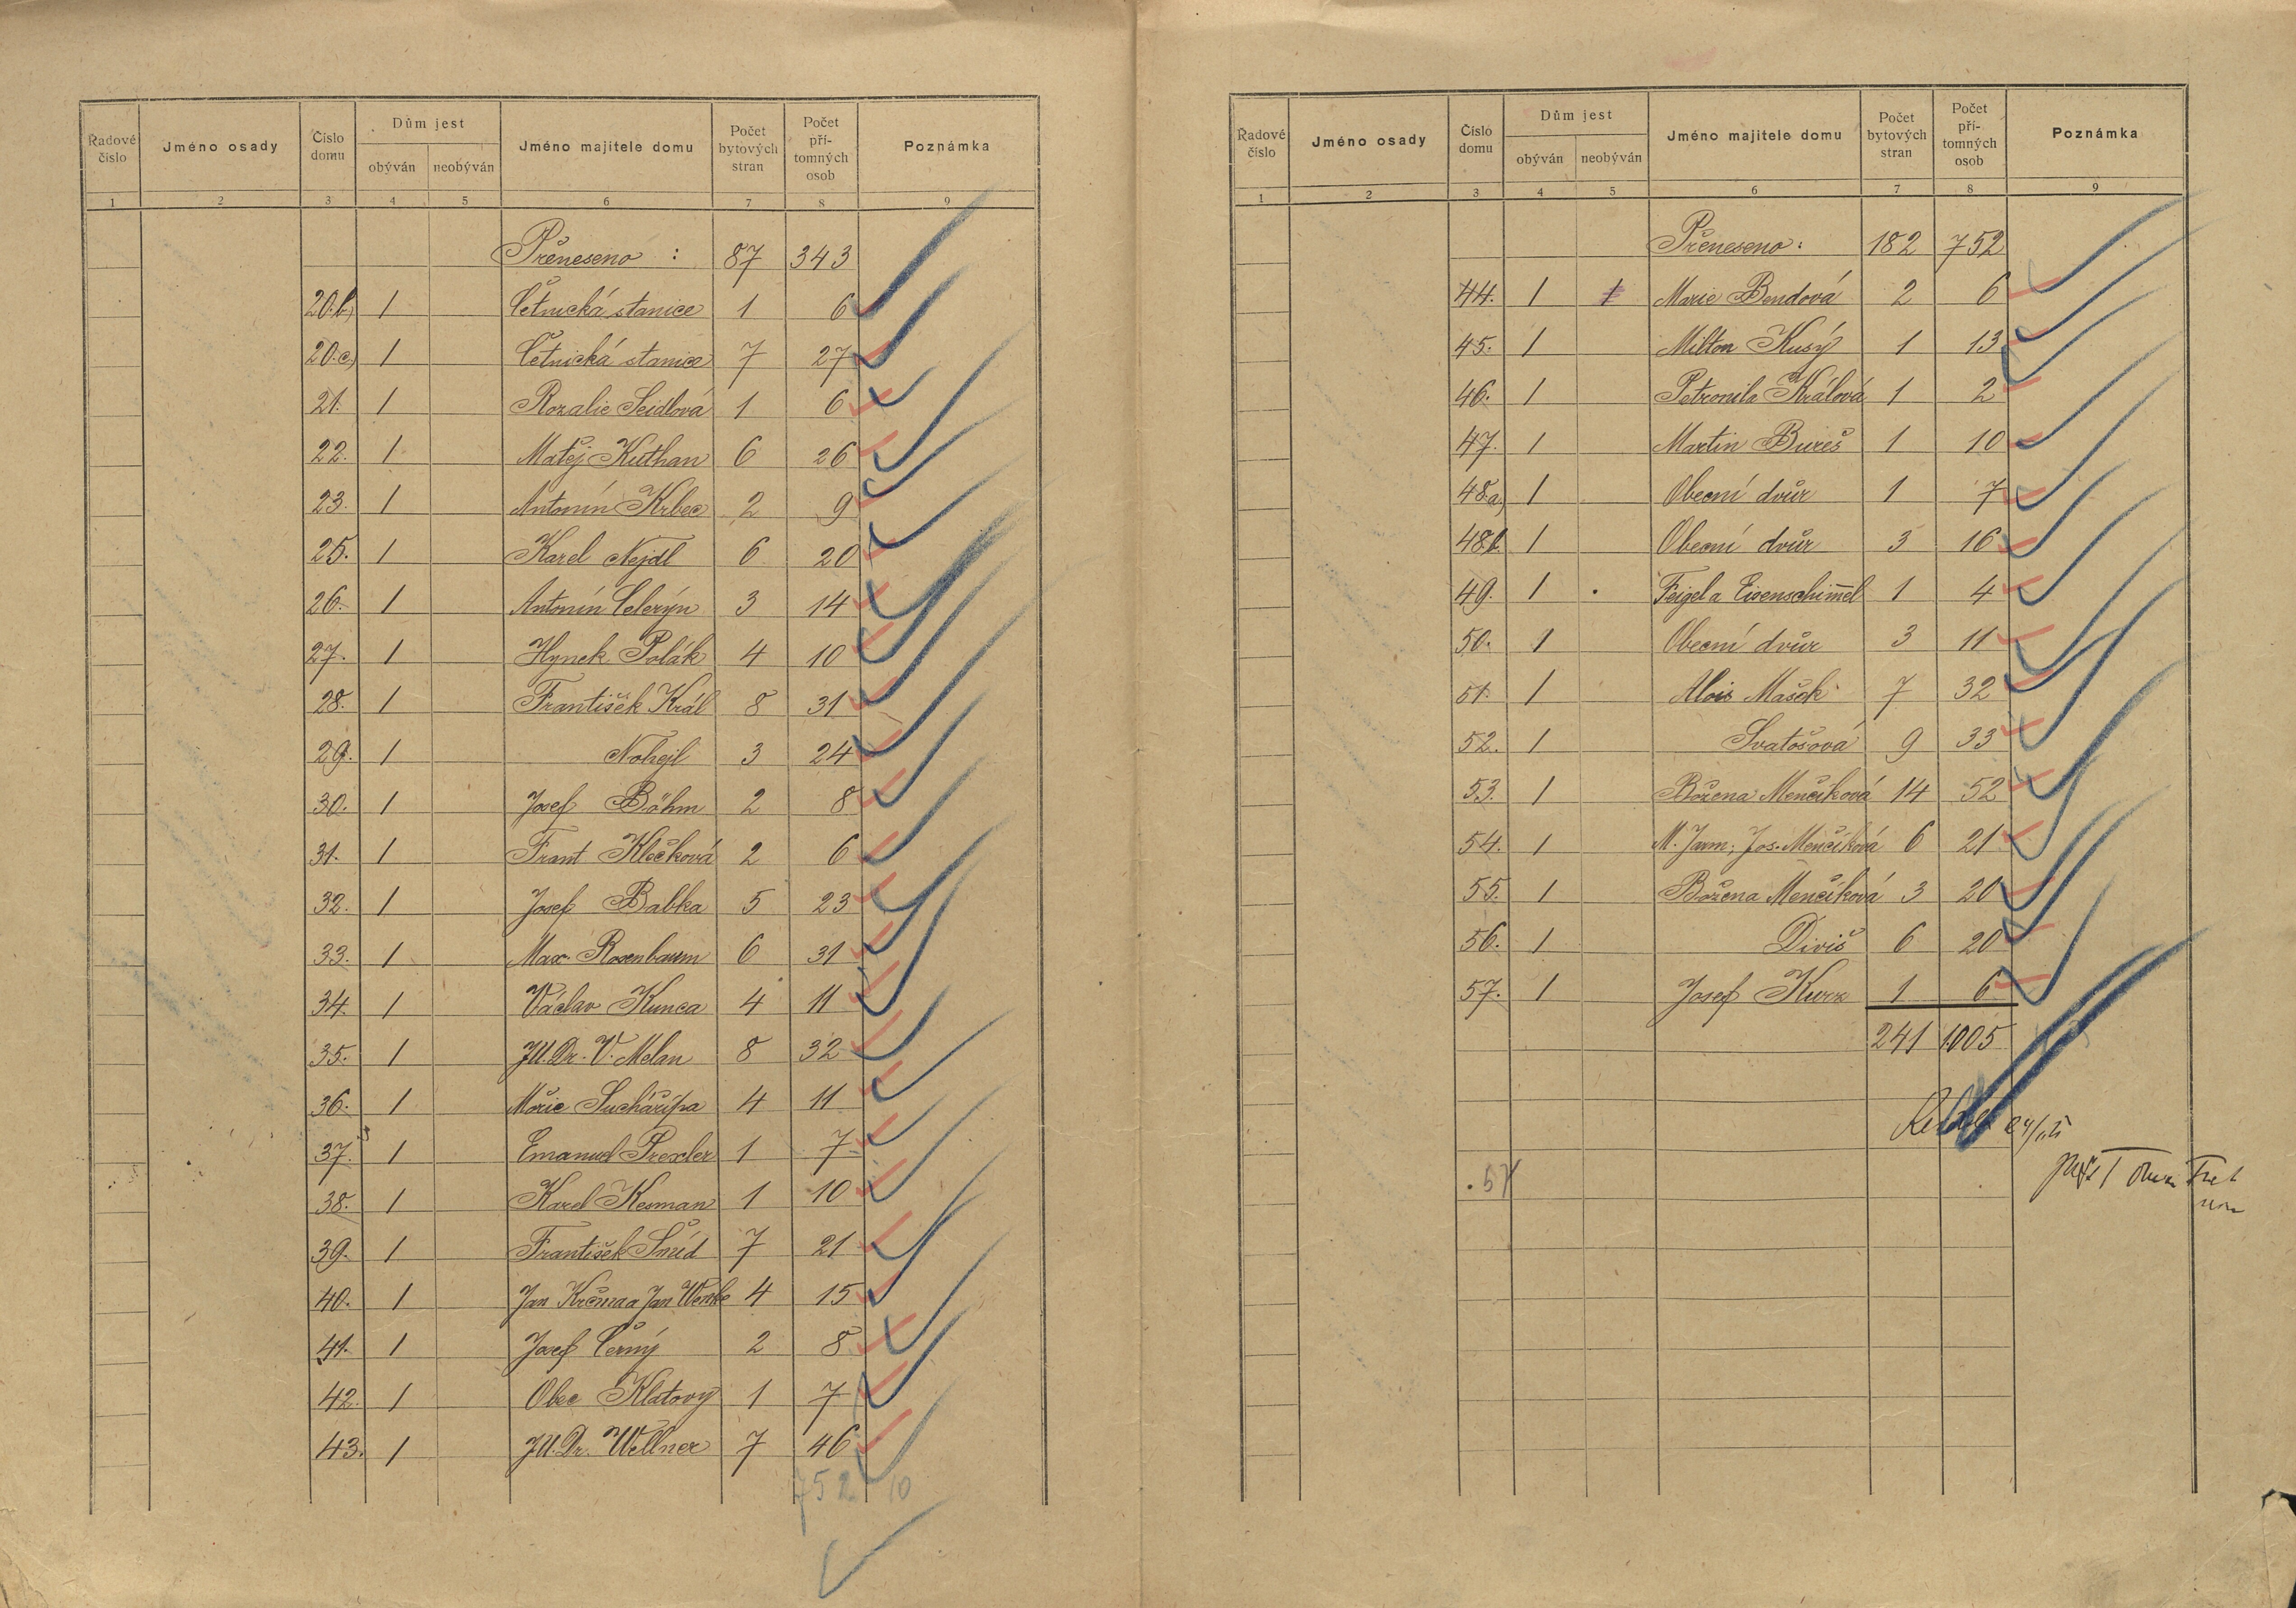 Řadové číslo | Jméno osady | Číslo domu | Dům jest obýván | neobýván | Jméno majitele domu | Počet bytových stran | Počet přítomných osob | Poznámka
1 | 2 | 3 | 4 | 5 | 6 | 7 | 8 | 9
Přeneseno : 87 343
20.b) 1 Četnická stanice 1 6
20.c) 1 Četnická stanice 7 27
21. 1 Rozalie Seidlová 1 6
22. 1 Matěj Kuthan 6 26
23. 1 Antonín Krbec 2 9
25. 1 Karel Nejdl 6 20
26. 1 Antonín Celerýn 3 14
27. 1 Hynek Polák 4 10
28. 1 František Král 8 31
29. 1 Nohejl 3 24
30. 1 Josef Böhm 2 8
31. 1 Frant Klečková 2 6
32. 1 Josef Babka 5 23
33. 1 Max. Rosenbaum 6 31
34. 1 Václav Kunca 4 11
35. 1 JU.Dr. V. Melan 8 32
36. 1 Mořic Suchařípa 4 11
37. 1 Emanuel Prexler 1 7
38. 1 Karel Kesman 1 10
39. 1 František Šmíd 7 21
40. 1 Jan Krčma a Jan 4 15
41. 1 Josef Černý 2 8
42. 1 Obec Klatovy 1 7
43. 1 JU.Dr. Wellner 7 46
752 10
Řadové číslo | Jméno osady | Číslo domu | Dům jest obýván | neobýván | Jméno majitele domu | Počet bytových stran | Počet přítomných osob | Poznámka
1 | 2 | 3 | 4 | 5 | 6 | 7 | 8 | 9
Přeneseno: 182 752
44. 1 1 Marie Bendová 2 6
45. 1 Milton Kusý 1 13
46. 1 Petronila Králová 1 2
47. 1 Martin Bureš 1 10
48.a) 1 Obecní dvůr 1 7
48.b. 1 Obecní dvůr 3 16
49. 1 Feigel a Eisenschim̅el 1 4
50. 1 Obecní dvůr 3 11
51. 1 Alois Mašek 7 32
52. 1 Svatošová 9 33
53. 1 Božena Menčíková 14 52
54. 1 M. Jarm; Jos. Menčíková 6 21
55. 1 Božena Menčíková 3 20
56. 1 Diviš 6 20
57. 1 Josef Kurz 1 6
241 1.005
. 57